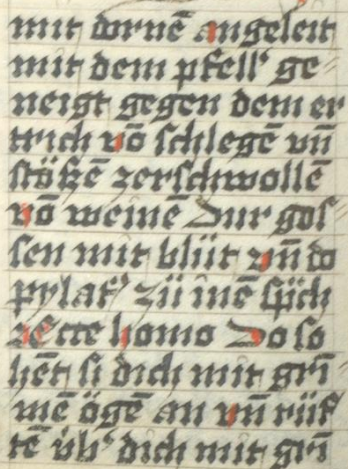 mit dornē angeleit
mit dem pfell' ge⸗
neigt gegen dem er
trich vō schlegē vn̄
stöſzē zerschwollē
vō weinē Dur gos
sen mit blůt vn̄ do
pylat' zů inē sp̄ch
ecce homo Do sa
hēt si dich mit gri̅
mē ögē an vn̄ růf
tē üb' dich mit gri̅